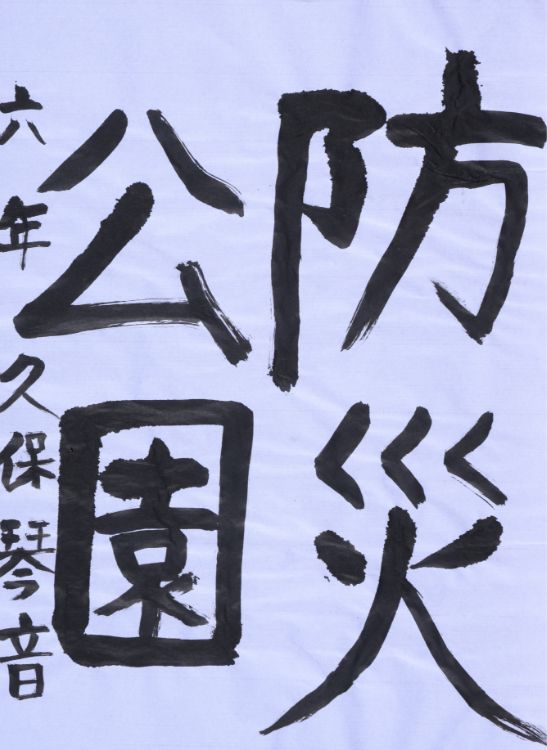 防災
公園
六年 久保琴音